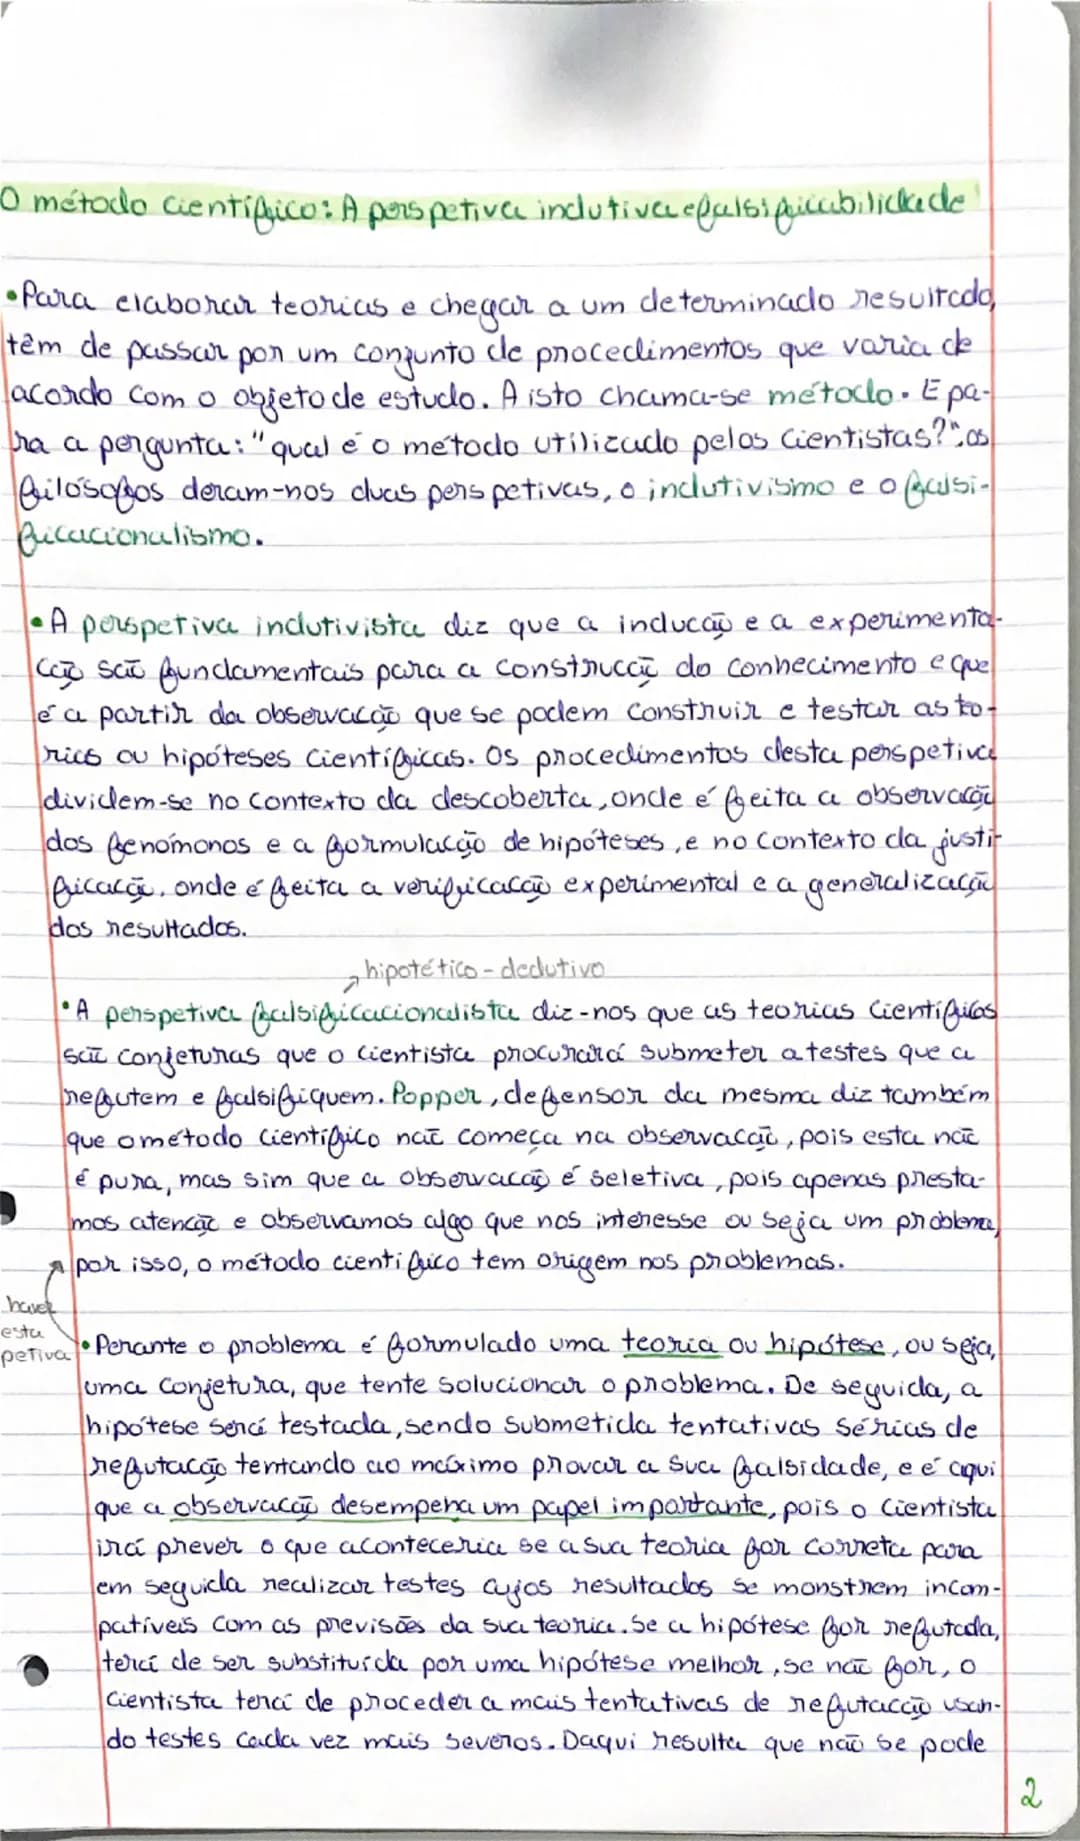 O método científico: A perspetiva indutiva e falsificabilidade
•Para elaborar teorias e chegar a um determinado resultado,
têm de passar por um conjunto de procedimentos que varia de
acordo com o objeto de estudo. A isto chama-se método. E pa-
ra a pergunta: "qual é o método utilizado pelos cientistas?", os
filósofos deram-nos duas perspetivas, o indutivismo e o falsi-
ficacionalismo.
•A perspetiva indutivista diz que a indução e a experimenta-
ção são fundamentais para a construção do conhecimento e que
é a partir da observação que se podem construir e testar as teo-
rias ou hipóteses científicas. Os procedimentos desta perspetiva
dividem-se no contexto da descoberta, onde é feita a observação
dos fenómonos e a formulação de hipóteses, e no contexto da justi-
ficação, onde é feita a verificação experimental e a generalização
dos resultados.
hipotético-dedutivo
•A perspetiva falsificacionalista diz-nos que as teorias científicas
são conjeturas que o cientista procurará submeter a testes que a
refutem e falsifiquem. Popper, defensor da mesma diz também
que o método científico não começa na observação, pois esta não
é pura, mas sim que a observação é seletiva, pois apenas presta-
mos atenção e observamos algo que nos interesse ou seja um problema,
por isso, o método científico tem origem nos problemas.
haver
esta
petiva
•Perante o problema é formulado uma teoria ou hipótese, ou seja,
uma conjetura, que tente solucionar o problema. De seguida, a
hipótese será testada, sendo submetida tentativas sérias de
refutação tentando ao máximo provar a sua falsidade, e é aqui
que a observação desempeha um papel importante, pois o cientista
irá prever o que aconteceria se a sua teoria for correta para
em seguida realizar testes cujos resultados se monstrem incom-
patíveis com as previsões da sua teoria. Se a hipótese for refutada,
terá de ser substituída por uma hipótese melhor, se não for, o
cientista terá de proceder a mais tentativas de refutação usan-
do testes cada vez mais severos. Daqui resulta que não se pode
2